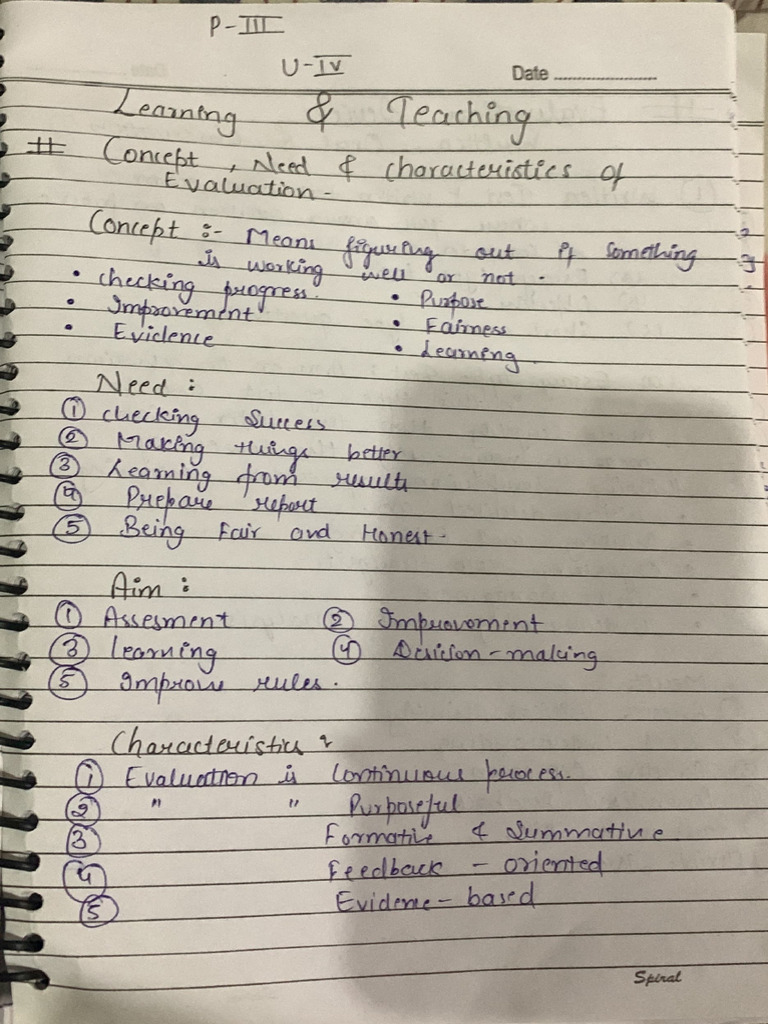 P-III
U-IV
Date
Learning & Teaching
# Concept, Need & characteristics of
Evaluation -
Concept :- Means figuring out if something
is working well or not.
• checking progress. • Purpose
• Improvement • Fairness
• Evidence • Learning.
Need :
① checking Success
② Making things better
③ Learning from results
④ Prepare report
⑤ Being Fair and Honest.
Aim :
① Assesment ② Improvoment
③ learning ④ Decision-making
⑤ Improve rules.
Characteristics :
① Evaluation is continuous process.
② " " Purposeful
③ Formative & Summative
④ Feedback - oriented
⑤ Evidence - based
Spiral